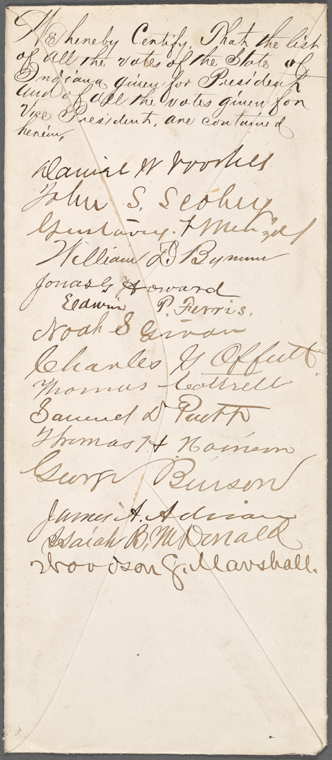 We hereby Certify, That the list
of all the votes of the State of
Indiana given for President
and of all the votes given for
Vice President, are contained
herein,
Daniel W Voorhees
John S. Scobey
William D Bynum
Jonas G Howard
Edwin P. Ferris.
Noah S Givan
Charles Y Offutt
Thomas Cottrell
Samuel D Puett
Thomas H. Harrison
George Burson
James A. Adrian
Isaiah B. McDonald
Woodson S. Marshall.